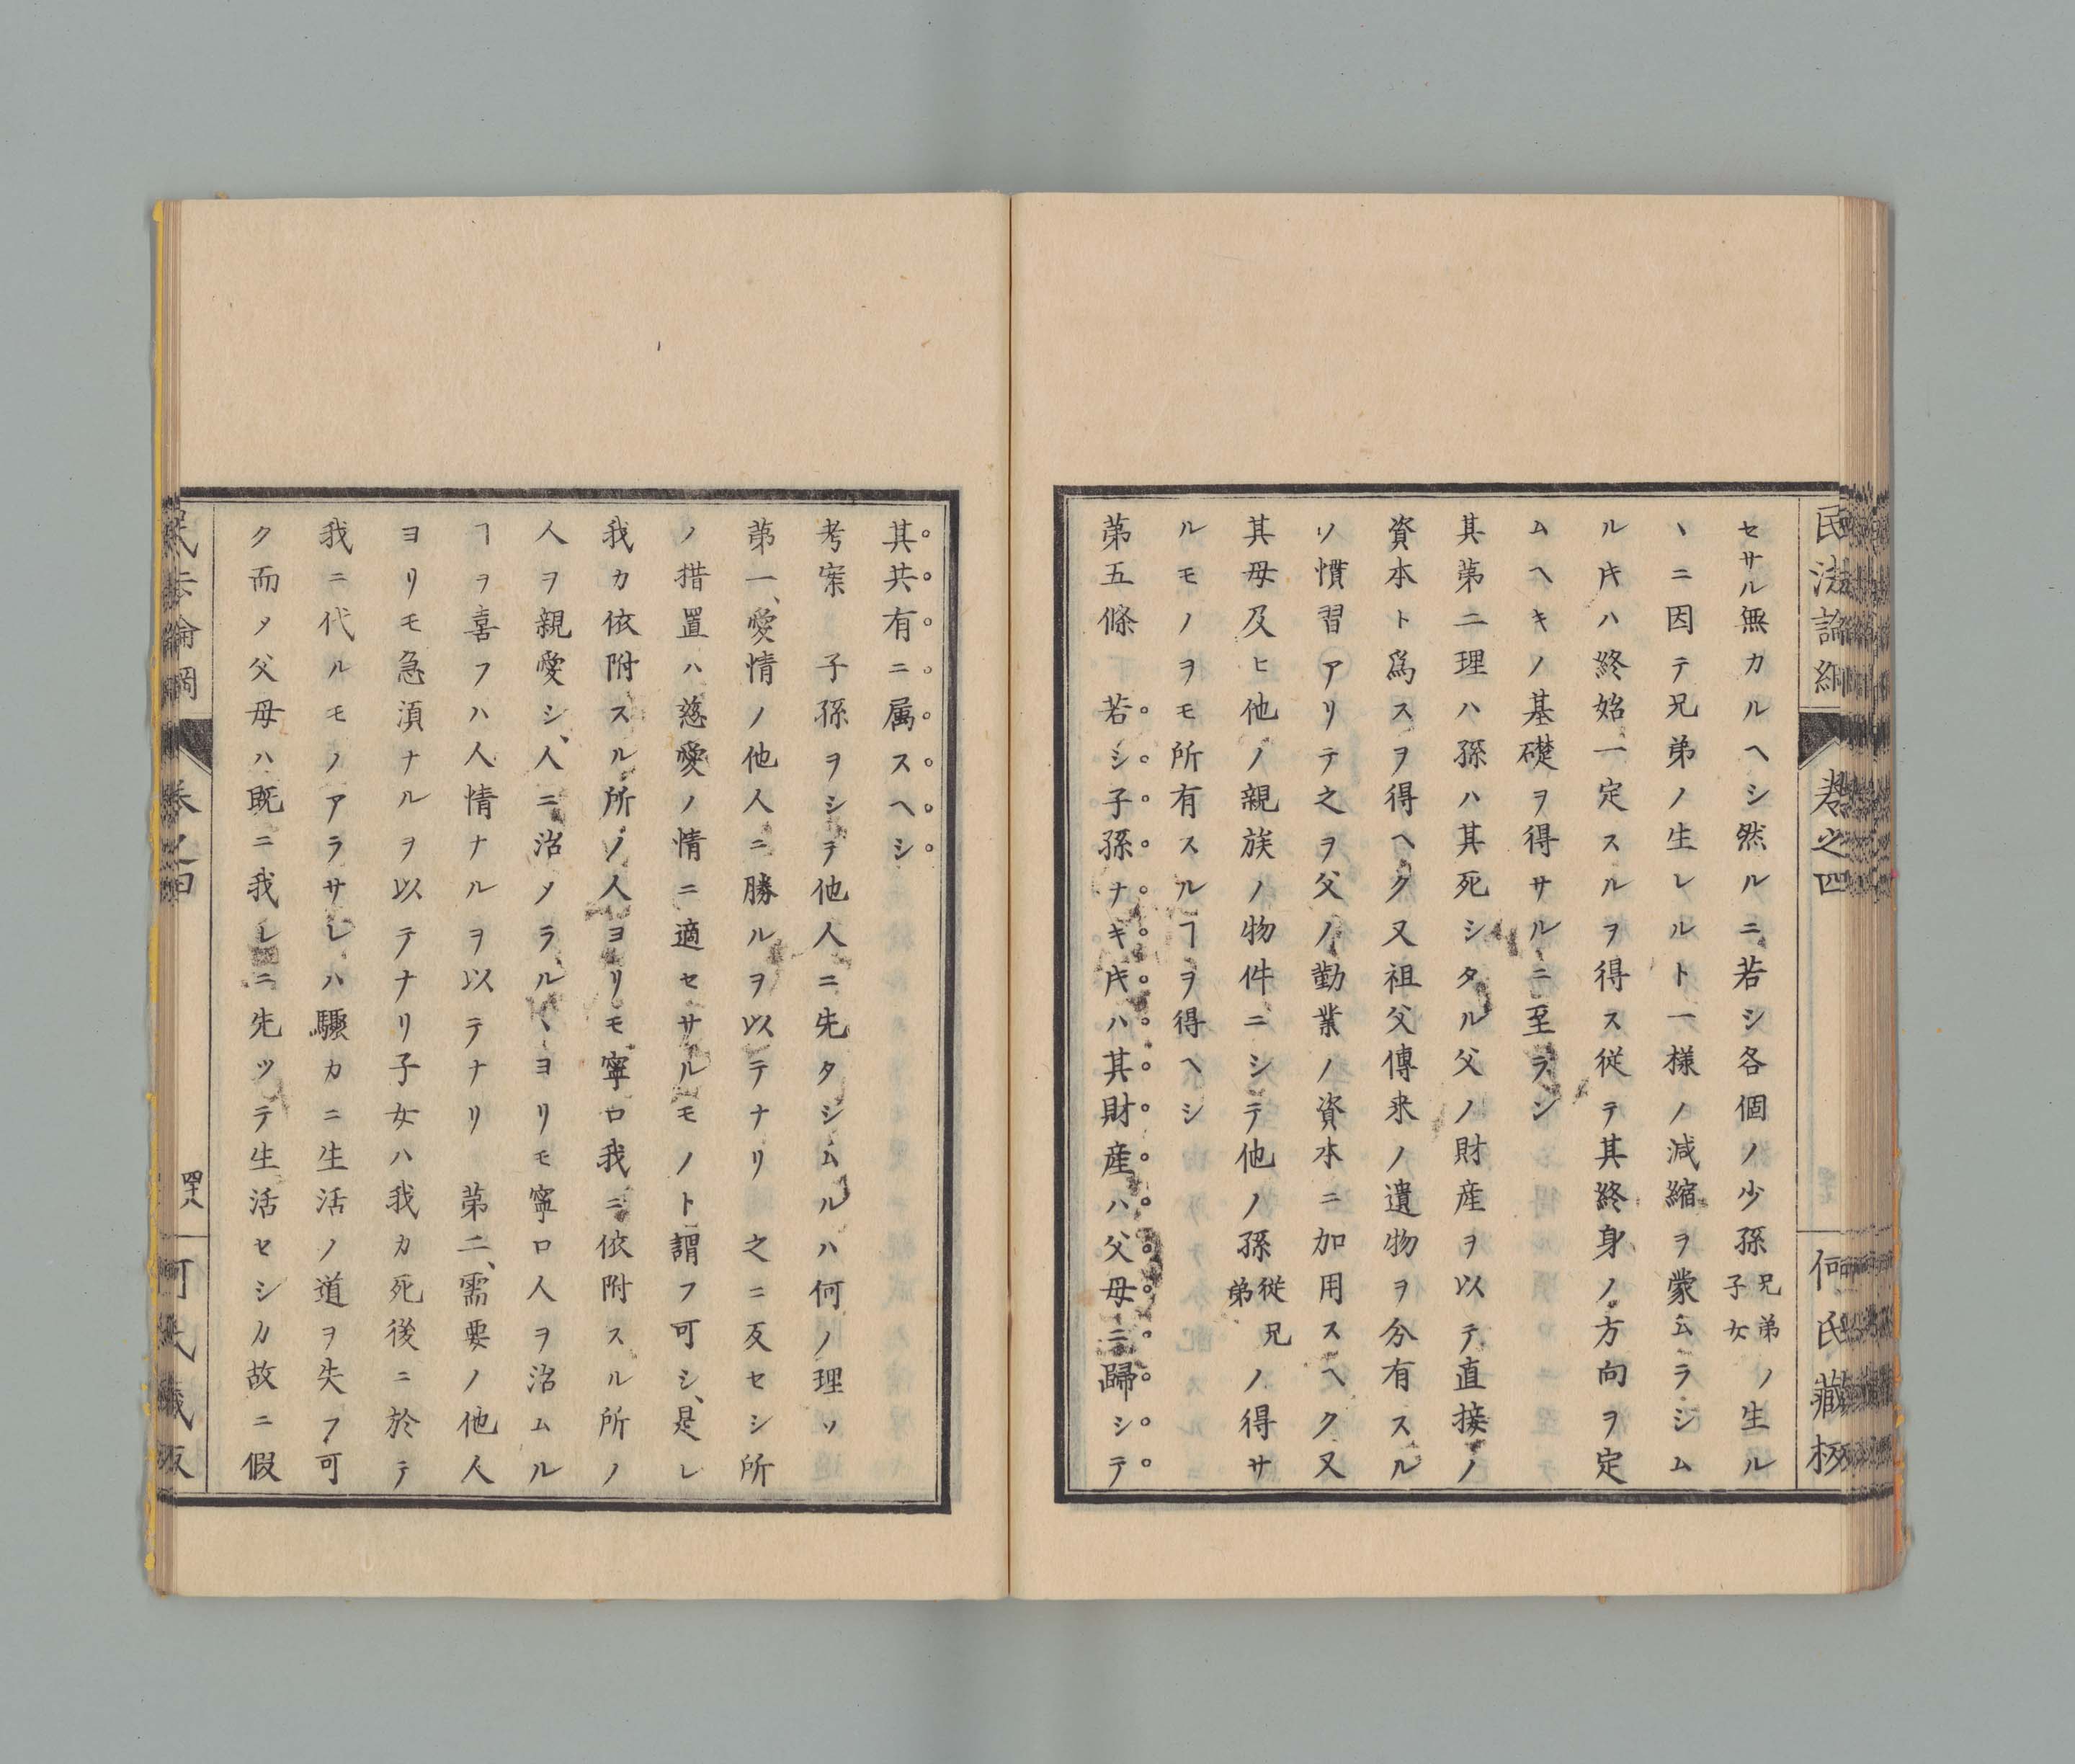 民法論綱 卷之四 何氏藏板
セサル無カルヘシ然ルニ若シ各個ノ少孫兄弟子女ノ生ル
丶ニ因テ兄弟ノ生レルト一樣ノ減縮ヲ蒙ムラシム
ルキハ終始一定スルヲ得ス従テ其終身ノ方向ヲ定
ムヘキノ基礎ヲ得サルニ至ラン
其第二理ハ孫ハ其死シタル父ノ財産ヲ以テ直接ノ
資本ト爲スヲ得ヘク又祖父傳来ノ遺物ヲ分有スル
ソ慣習アリテ之ヲ父ノ勤業ノ資本ニ加用スヘク又
其母及ヒ他ノ親族ノ物件ニシテ他ノ孫従兄弟ノ得サ
ルモノヲモ所有スルヿヲ得ヘシ
第五條 若シ子孫ナキキハ其財産ハ父母ニ歸シテ
其共有ニ属スヘシ
考案 子孫ヲシテ他人ニ先タシムルハ何ノ理ソ
第一、愛情ノ他人ニ勝ルヲ以テナリ 之ニ反セシ所
ノ措置ハ慈愛ノ情ニ適セサルモノト謂フ可シ、是レ
我カ依附スル所ノ人ヨリモ寧ロ我ニ依附スル所ノ
人ヲ親愛シ、人ニ治メラル丶ヨリモ寧ロ人ヲ治ムル
ヿヲ喜フハ人情ナルヲ以テナリ 第二、需要ノ他人
ヨリモ急須ナルヲ以テナリ子女ハ我カ死後ニ於テ
我ニ代ルモノアラサレハ驟カニ生活ノ道ヲ失フ可
ク而メ父母ハ既ニ我レニ先ツテ生活セシカ故ニ假
民法論綱 卷之四 四十八 何氏藏板